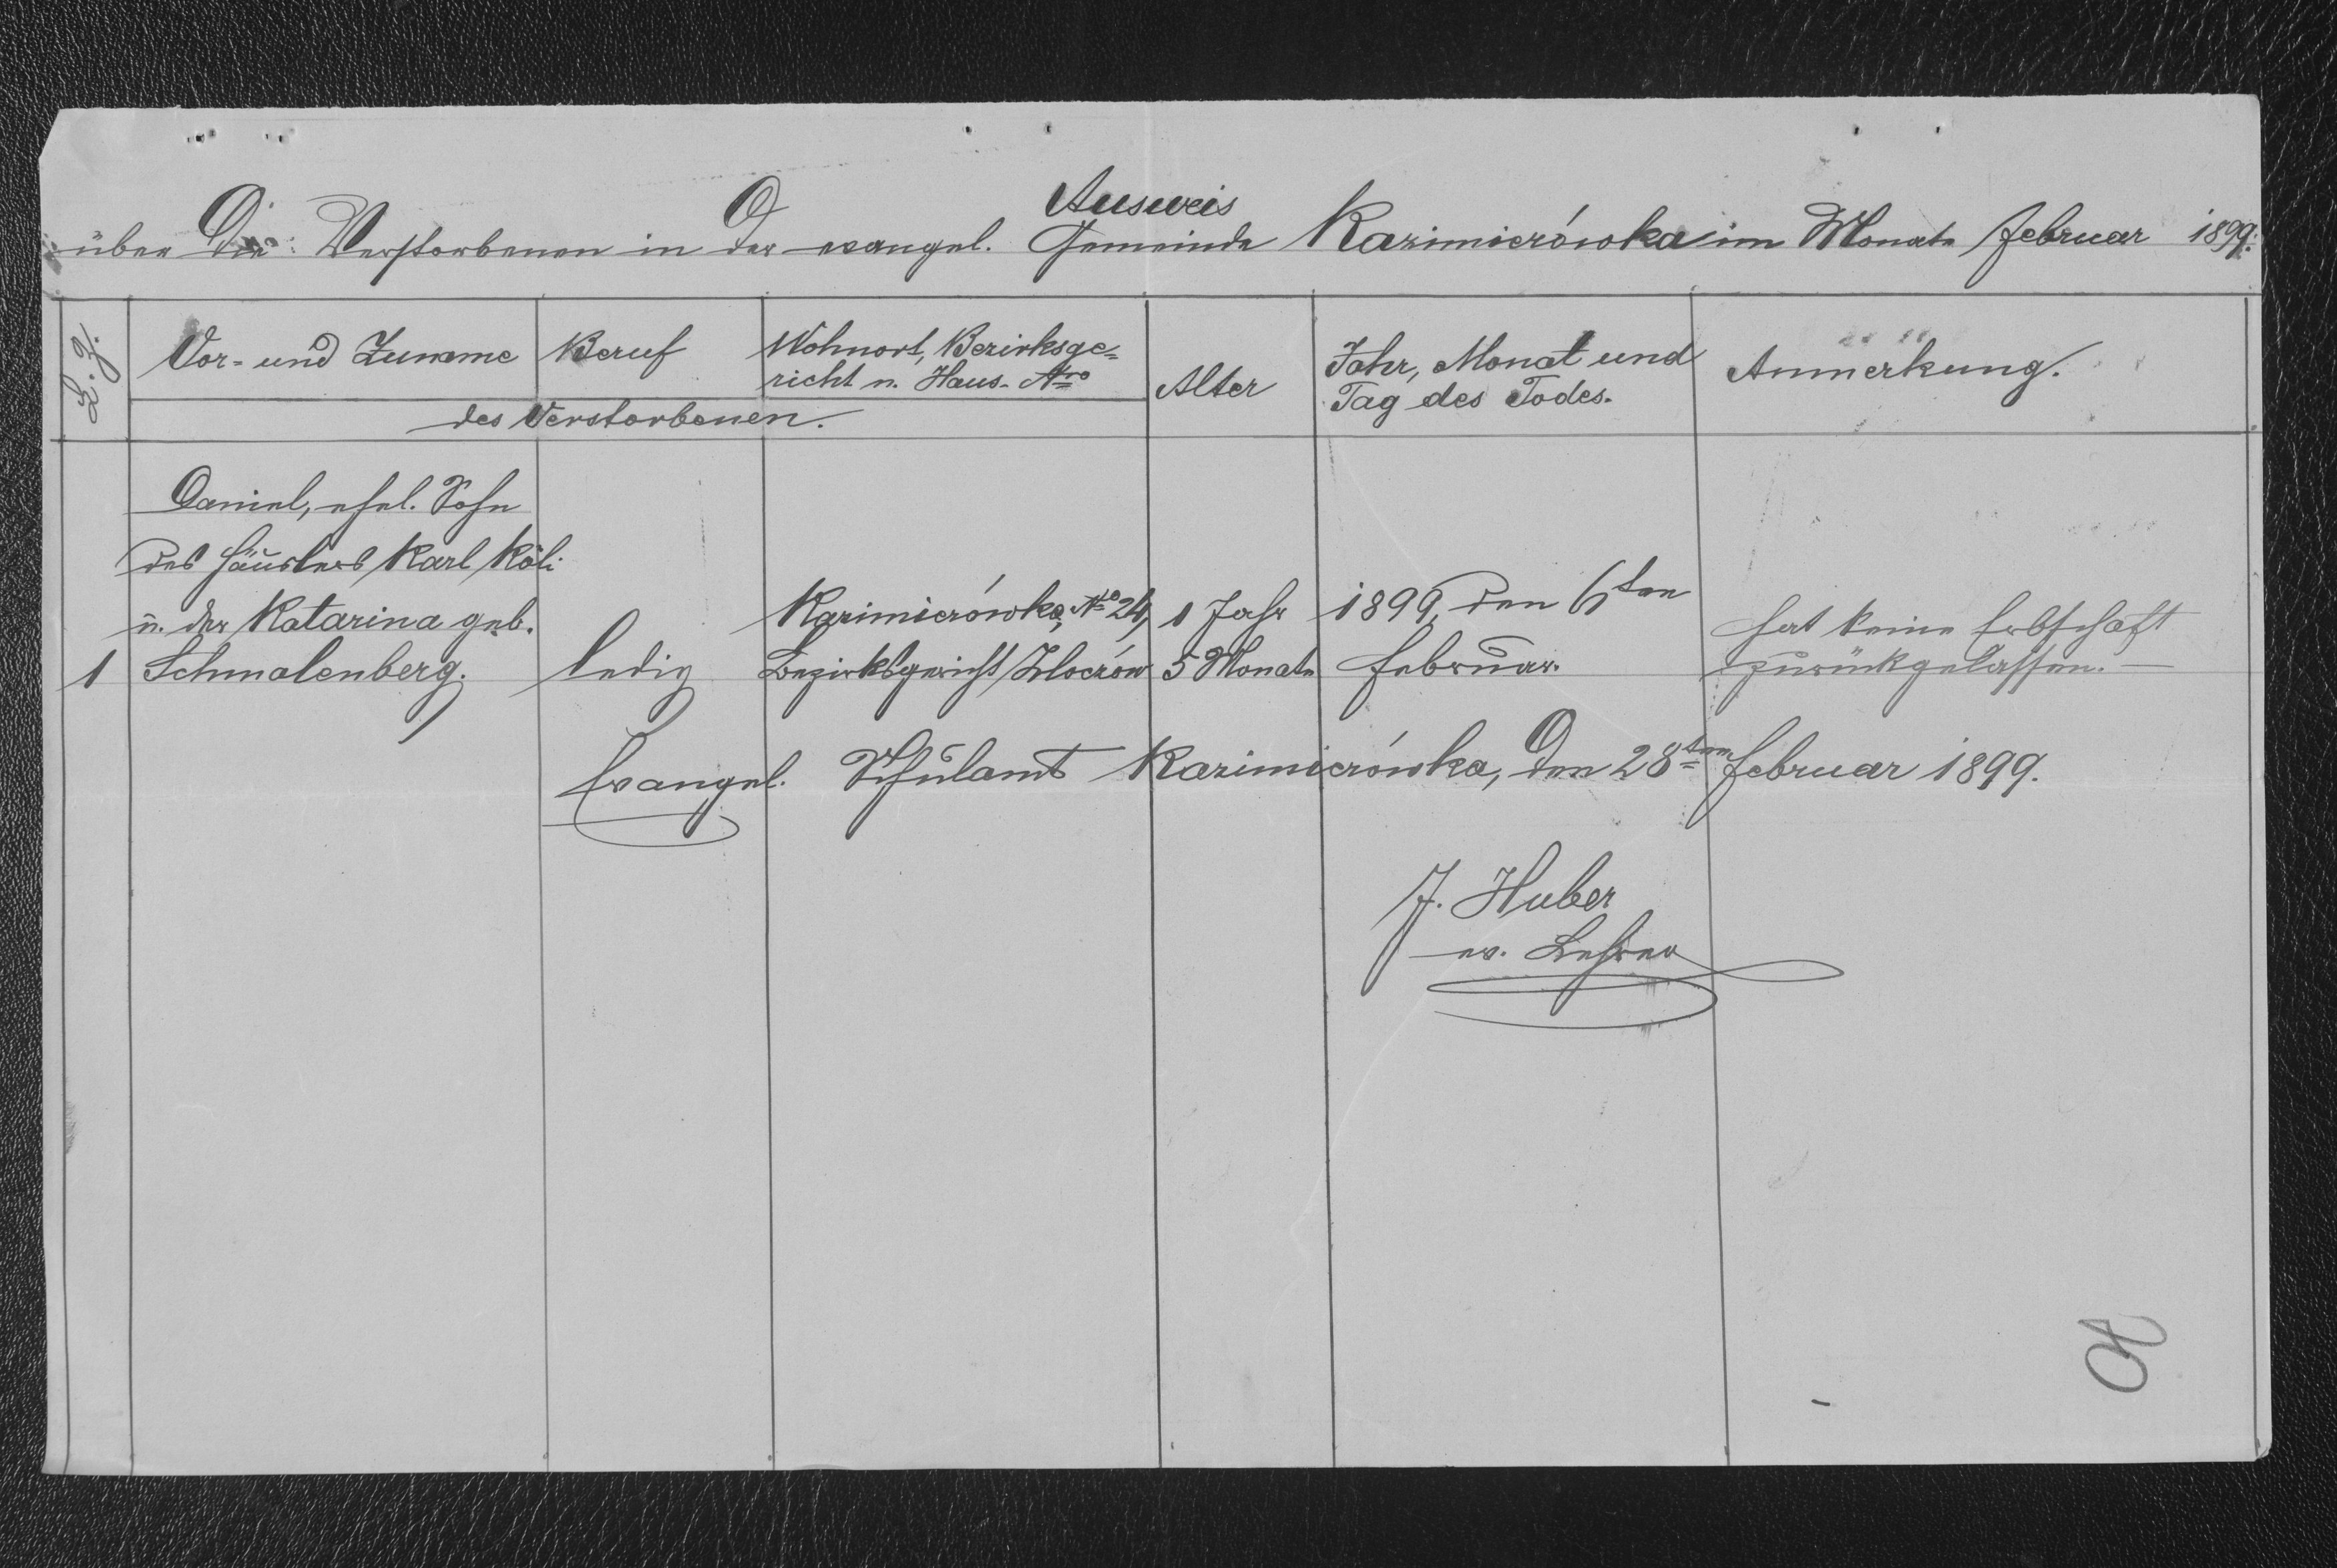 Ausweis
über die Verstorbenen in der evangel. Gemeinde Kazimierówka im Monate Februar 1899.
L. Z.
Vor- und Zuname
Beruf
Wohnort, Bezirksge=
richt u. Haus- Nro
des Verstorbenen.
Alter
Jahr, Monat und
Tag des Todes.
Anmerkung.
1
Daniel, ehel. Sohn
des Häuslers Karl Köli
u. der Katarina geb.
Schmalenberg.
ledig
Kazimierówka, No 24,
Bezirksgericht Zloczów
1 Jahr
5 Monate
1899, den 6ten
Februar.
Hat keine Erbschaft
zurückgelassen. —
Evangel. Schulamt Kazimierówka, den 28ten Februar 1899.
J. Huber
ev. Lehrer